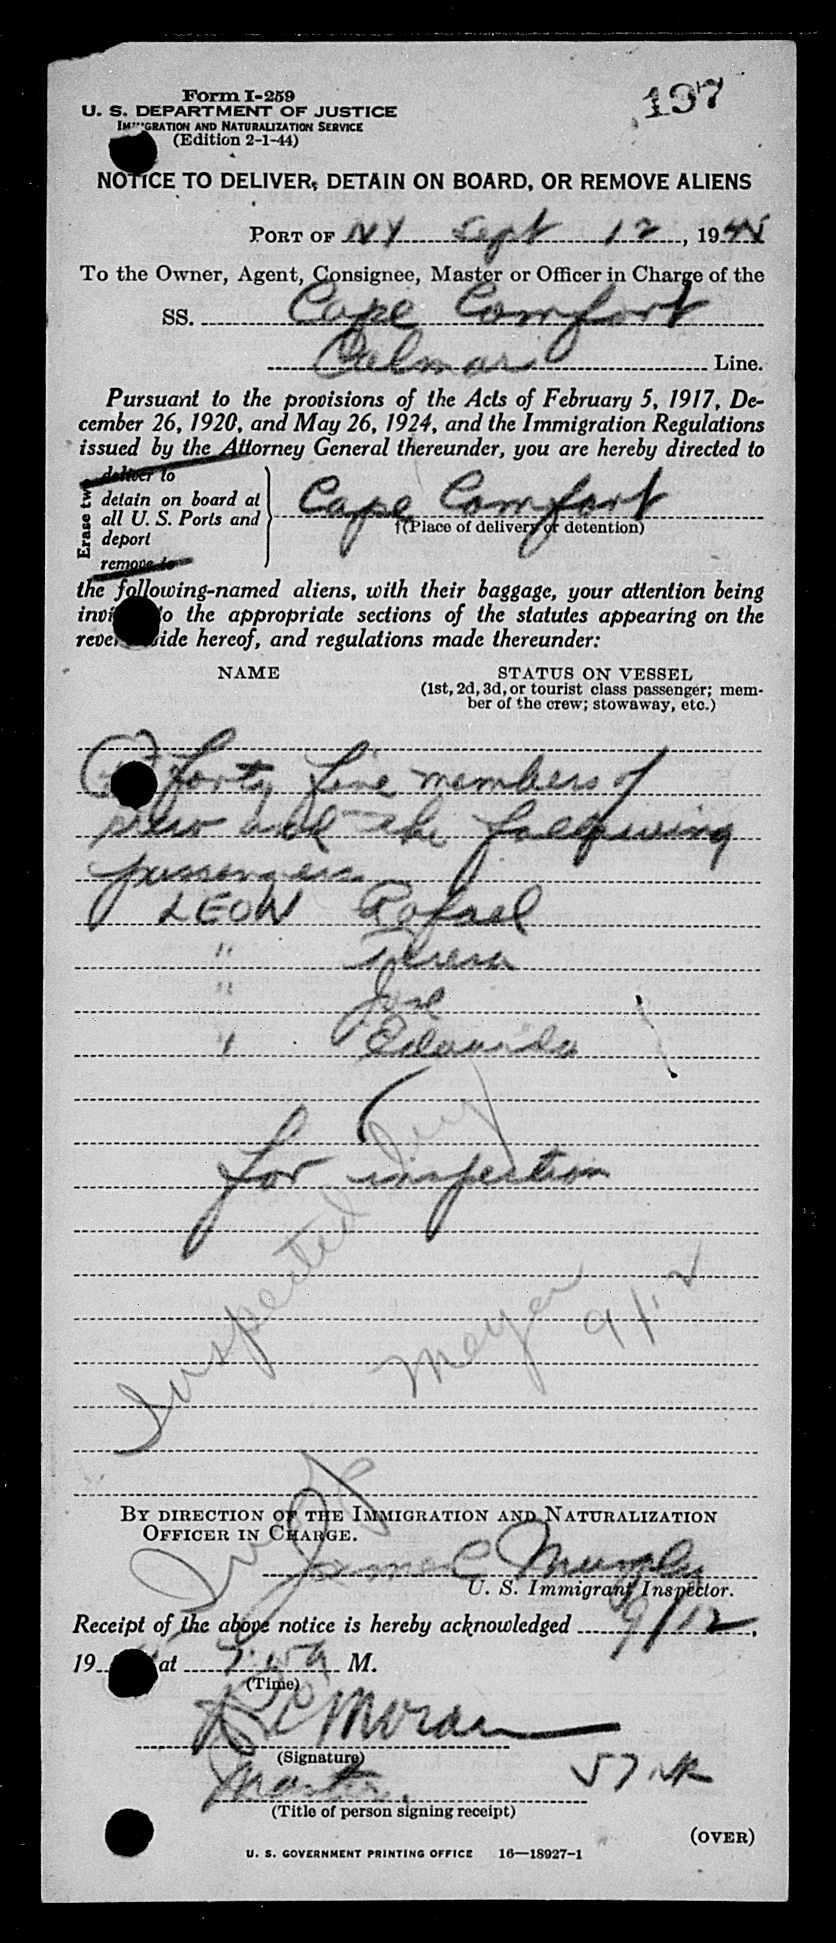 Form I-259
197
U. S. DEPARTMENT OF JUSTICE
IMMIGRATION AND NATURALIZATION SERVICE
(Edition 2-1-44)
NOTICE TO DELIVER, DETAIN ON BOARD, OR REMOVE ALIENS
PORT OF NY Sept 12, 19
To the Owner, Agent, Consignee, Master or Officer in Charge of the
SS. Cape Comfort
Calmar Line.
Pursuant to the provisions of the Acts of February 5, 1917, De-
cember 26, 1920, and May 26, 1924, and the Immigration Regulations
issued by the Attorney General thereunder, you are hereby directed to
Erase two
deliver to
detain on board at
all U. S. Ports and
deport
remove to
Cape Comfort
†(Place of delivery or detention)
the following-named aliens, with their baggage, your attention being
invi to the appropriate sections of the statutes appearing on the
rever side hereof, and regulations made thereunder:
NAME STATUS ON VESSEL
(1st, 2d, 3d, or tourist class passenger; mem-
ber of the crew; stowaway, etc.)
forty five members of
crew and the following
passengers
LEON Rafael
" Teresa
" Jose
" Eduardo
for inspection
Inspected
Meyer 9/12
BY DIRECTION OF THE IMMIGRATION AND NATURALIZATION
OFFICER IN CHARGE.
James C Murphy
U. S. Immigrant Inspector.
Receipt of the above notice is hereby acknowledged 9/12,
19 at M.
(Time)
R C Moran
(Signature)
Master
57
(Title of person signing receipt)
(OVER)
U. S. GOVERNMENT PRINTING OFFICE 16—18927-1